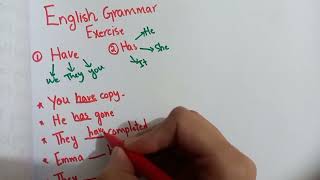 English Grammar
Exercise
① Have ② Has → He
→ She
We They you It
* You have copy.
* He has gone
* They hav completed
* Emma
* They